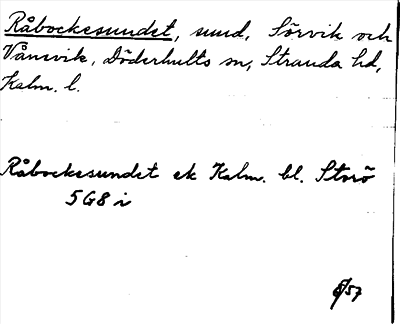 Råbockesundet, sund, Sörvik och
Vånevik, Döderhults sn, Stranda hd,
Kalm. l.
Råbockesundet ek Kalm. bl. Storö
5G8i
/57